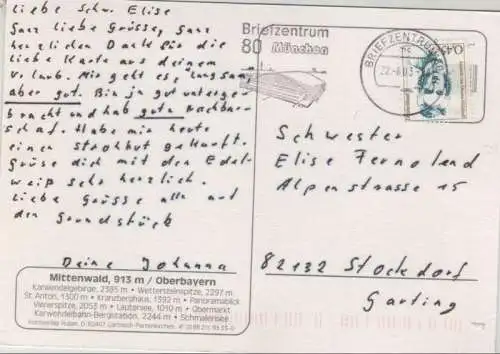 Liebe Schw. Elise
Ganz liebe Grüsse, Ganz
herzlichen Dank für die
liebe Karte aus deinem
Urlaub. Mir geht es, langsam,
aber gut. Bin ja gut unterge-
bracht und hab gute Nachbar-
schaf. Habe mir heute
einen Strohhut gekauft.
Grüse dich mit den Edel-
weiß sehr herzlich.
Liebe Grüsse alle auf
den Grundstück
Deine Johanna
Mittenwald, 913 m / Oberbayern
Karwendelgebirge, 2385 m • Wettersteinspitze, 2297 m
St. Anton, 1300 m • Kranzberghaus, 1392 m • Panoramablick
Viererspitze, 2053 m • Lautersee, 1010 m • Obermarkt
Karwendelbahn-Bergstation, 2244 m • Schmalensee
Briefzentrum
80 München
BRIEFZENTRUM
Schwester
Elise
Alpenstrasse 15
82132 Stockdorf
Garting